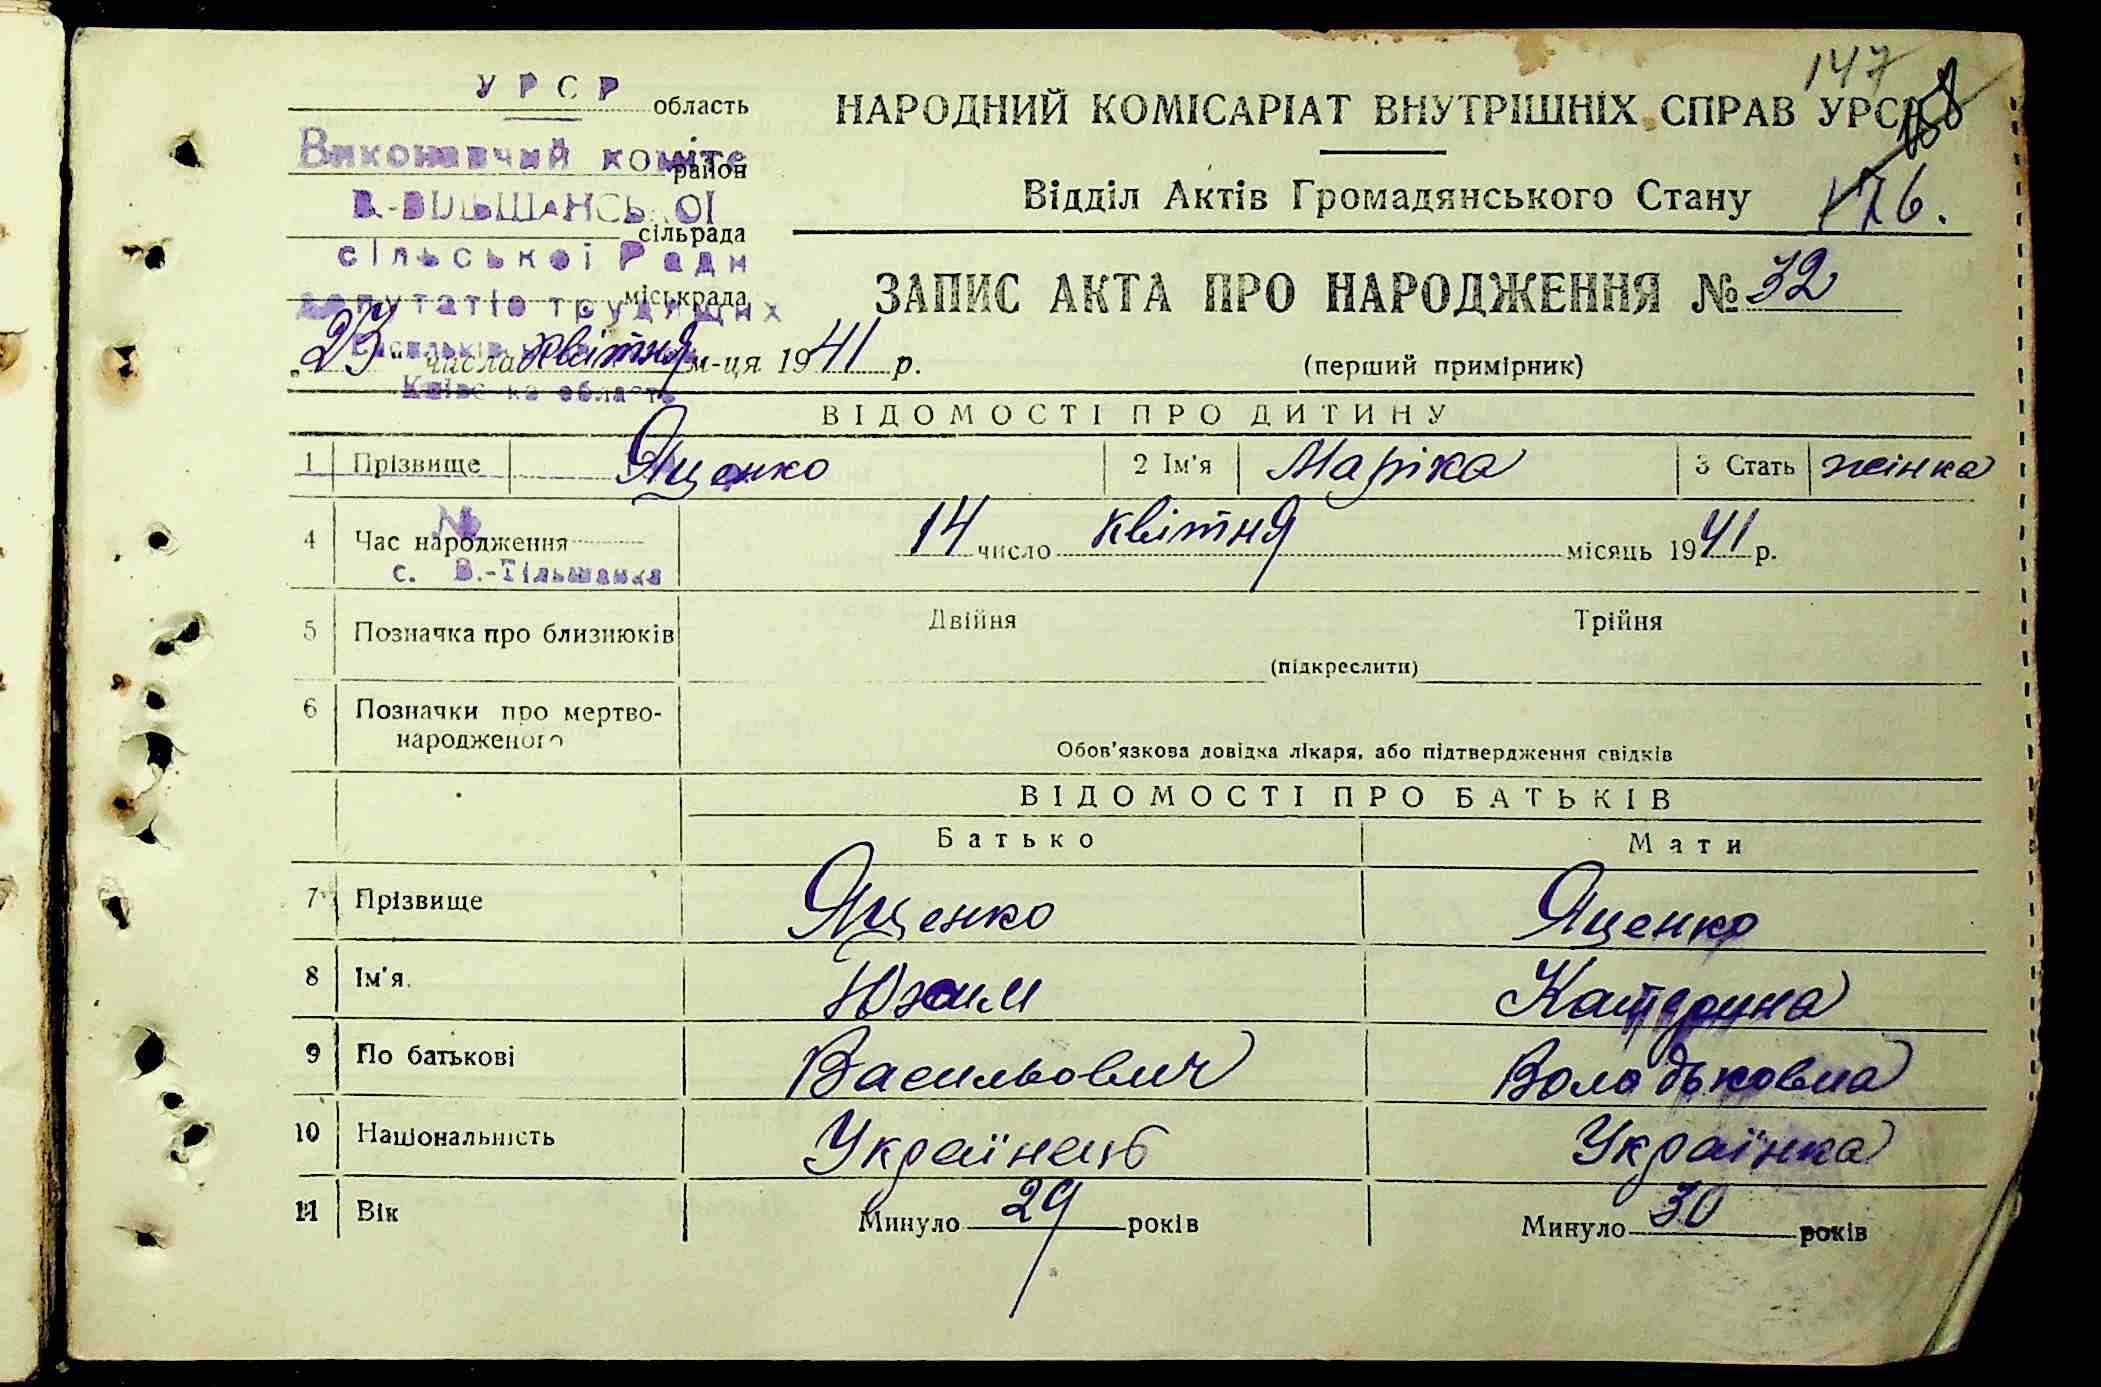 147
168
176.
У Р С Р
область
Виконавчий коміте
район
В.-ВІЛЬШАНСЬКОЇ
сільрада
сільської Ради
міськрада
депутатів трудящих
Васильків
„23" числа квітня м-ця 1941 р.
Київська область
№
с. В.-Вільшанка
НАРОДНИЙ КОМІСАРІАТ ВНУТРІШНІХ СПРАВ УРСР
Відділ Актів Громадянського Стану
ЗАПИС АКТА ПРО НАРОДЖЕННЯ № 32
(перший примірник)
ВІДОМОСТІ ПРО ДИТИНУ
1 Прізвище Яценко 2 Ім'я Маріка 3 Стать жінка
4 Час народження 14 число квітня місяць 1941 р.
5 Позначка про близнюків Двійня Трійня
(підкреслити)
6 Позначки про мертво-
народженого
Обов'язкова довідка лікаря, або підтвердження свідків
ВІДОМОСТІ ПРО БАТЬКІВ
Батько Мати
7 Прізвище Яценко Яценко
8 Ім'я. Юхим Катерина
9 По батькові Васильович Володьковна
10 Національність Українець Українка
11 Вік Минуло 29 років Минуло 30 років